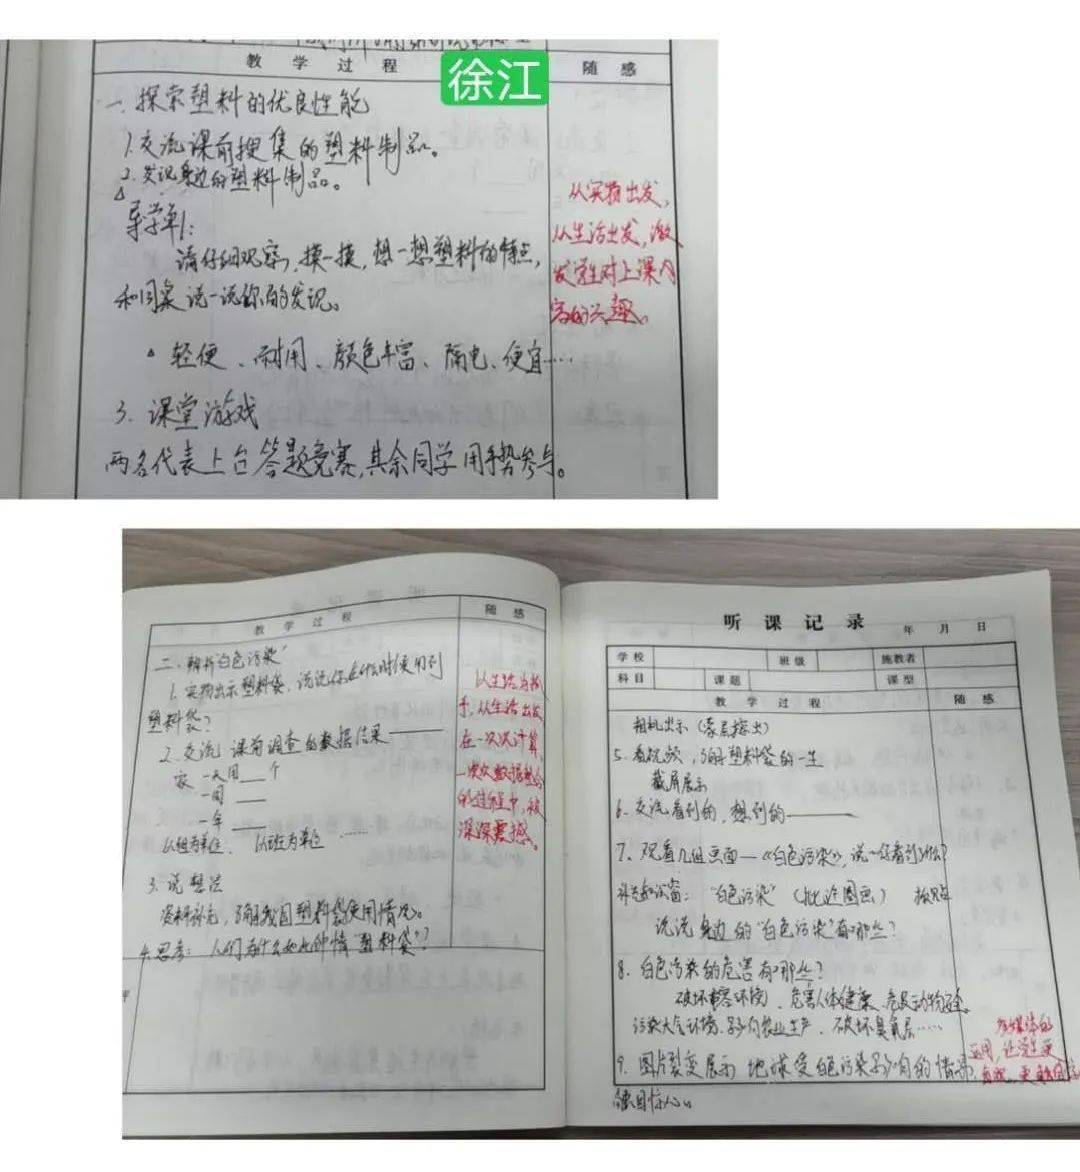 教 学 过 程
随 感
徐江
一、探索塑料的优良性能
1.交流课前搜集的塑料制品。
2.发现身边的塑料制品。
导学单1:
请仔细观察,摸一摸,想一想塑料的特点,
和同桌说一说你的发现。
轻便、耐用、颜色丰富、隔电、便宜……
3.课堂游戏
两名代表上台答题竞赛,其余同学用手势参与。
从实物出发,
从生活出发,激
发学生对上课内
容的兴趣。
教 学 过 程
随 感
二、辨析"白色污染"
1.实物出示塑料袋,说说你在什么时候使用到
塑料袋?
2.交流课前调查的数据结果
家 一天用 个
一周
一年
以组为单位、以班为单位……
3.说想法
资料补充,了解我国塑料袋使用情况。
4.思考:人们为什么如此钟情"塑料袋"?
手,从生活出发
在一次次计算,
一次次数据整合
的过程中,被
深深震撼。
听 课 记 录
年 月 日
学校
班级
施教者
科目
课题
课型
教 学 过 程
随 感
相机出示
5.看视频,了解塑料袋的一生
截屏展示
6.交流看到的,想到的
7.观看几组画面—《白色污染》,说一说看到了什么?
补充知识窗:"白色污染"
说说身边的"白色污染"有哪些?
8.白色污染的危害有哪些?
危害人体健康、危及动物安全、
污染大气环境、影响农业生产、破坏臭氧层……
9.图片裂变展示 地球受白色污染影响的情景,
触目惊心。
多媒体的
运用,让学生更
直观、更